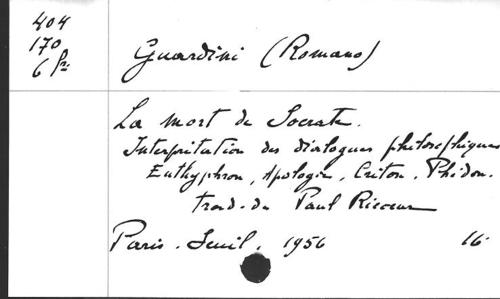 404
170
6 fr
Guardini (Romano)
La mort de Socrate.
Interprétation des dialogues philosophiques
Euthyphron, Apologie, Criton, Phédon.
trad. de Paul Ricoeur
Paris. Seuil. 1956 16.